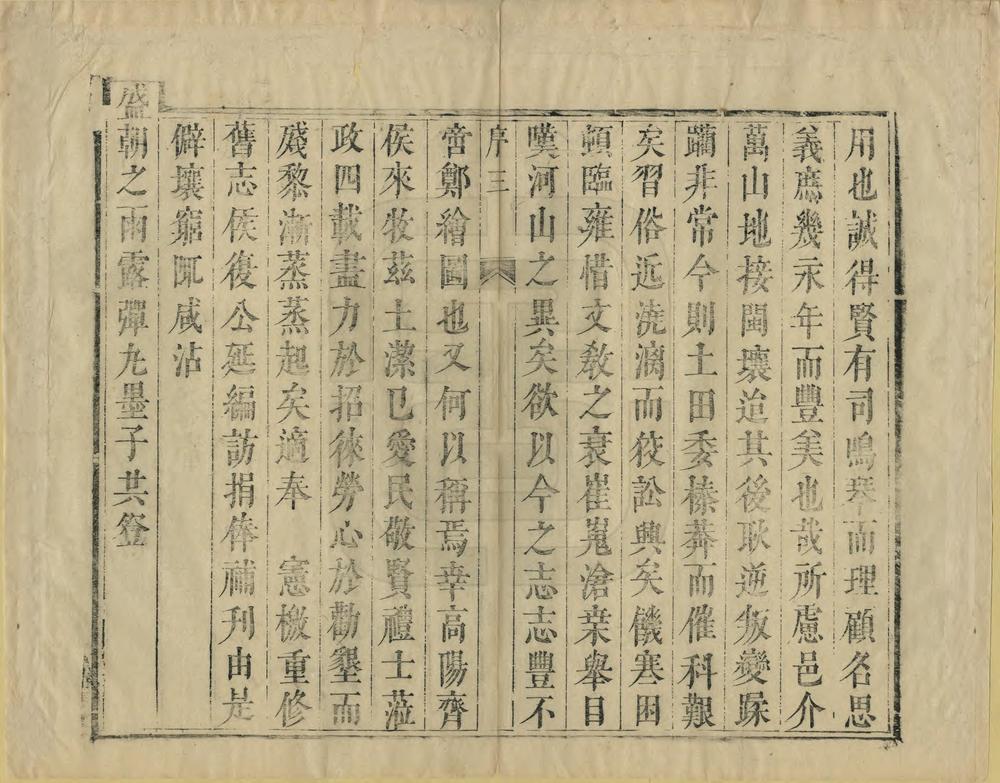 用也誠得賢有司鳴琴而理顧名思
義庶幾永年而豐美也哉所慮邑介
萬山地接閩壤迨其後耿逆叛變蹂
躪非常今則土田委榛莽而催科艱
矣習俗近澆漓而狡訟興矣饑寒困
頓臨雍惜文敎之衰崔嵬滄桒舉目
嘆河山之異矣欲以今之志志豐不
序 三
啻鄭繪圖也又何以稱焉幸高陽齊
侯來牧茲土潔已愛民敬賢禮士蒞
政四載盡力於招徠勞心於勸墾而
殘黎漸蒸蒸起矣適奉 憲檄重修
舊志侯復公延編訪捐俸補刊由是
僻壤窮陬咸沾
盛朝之雨露彈丸墨子共登